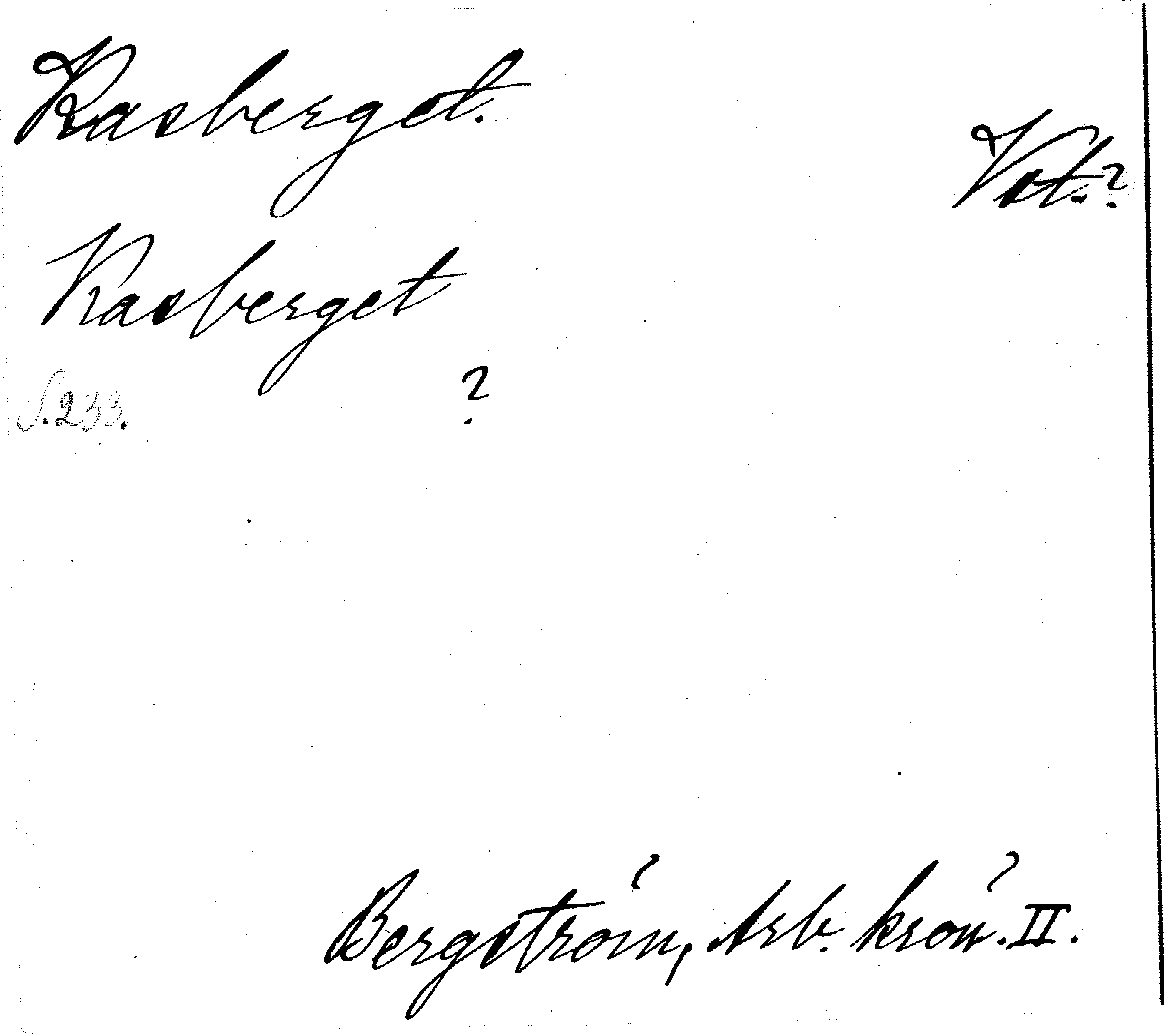 Rasberget.
Vst.?
Rasberget
S. 233. ?
Bergström, Arb. krön. II.